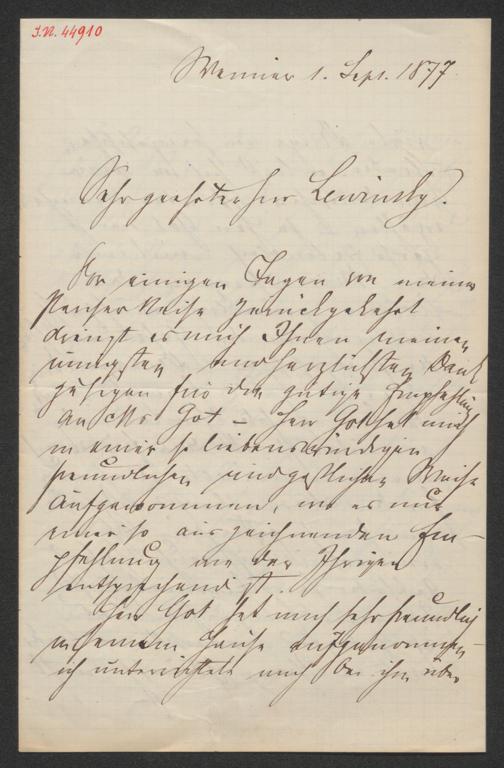 I.N. 44910
Weimar 1. Sept. 1877.
Sehr geehrter Herr Lewinsky.
Vor einigen Tagen von meiner
Pariser Reise zurückgekehrt
drängt es mich Ihnen meinen
innigsten und herzlichsten Dank
zu sagen für die gütige Empfehlung
an Mr Got – Herr Got hat mich
in einer so liebenswürdigen
freundlichen und gastlichen Weise
aufgenommen, wie es nur
einer so auszeichnenden Em-
pfehlung wie der Ihrigen
entsprechend ist.
Herr Got hat mich sehr freundlich
in seinem Hause aufgenommen –
ich unterrichtete mich bei ihm über